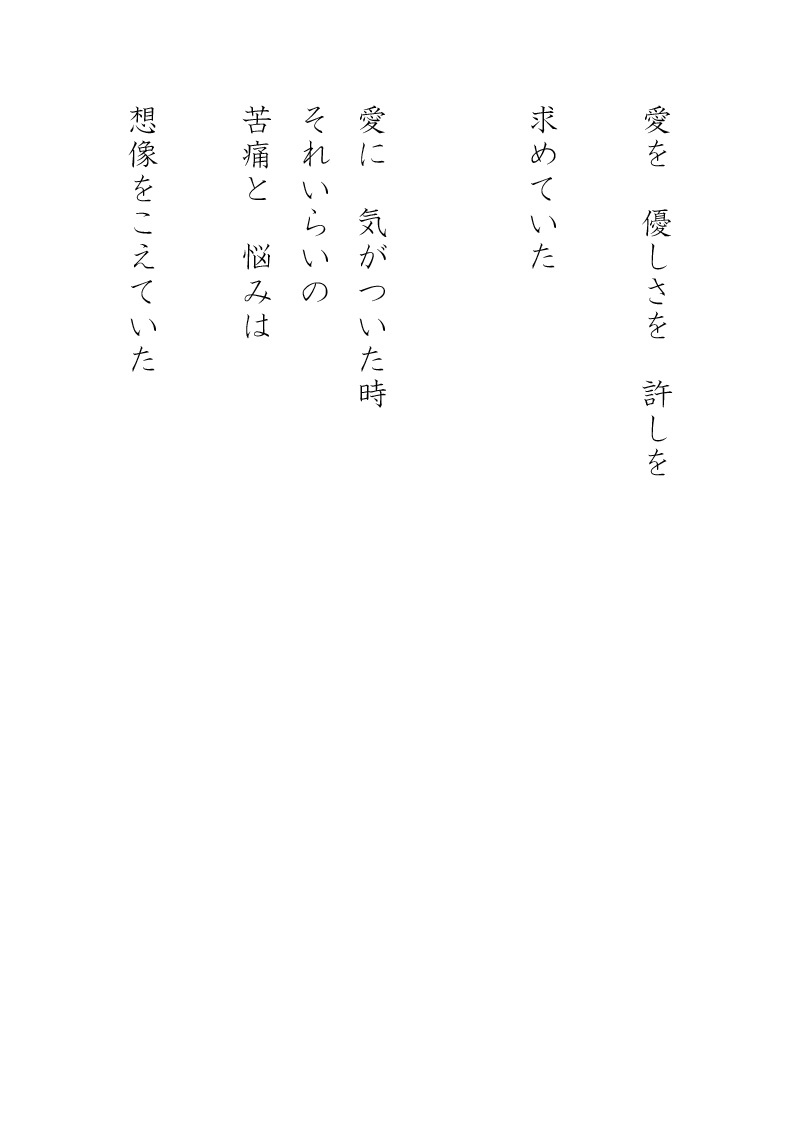 愛を　優しさを　許しを
求めていた
愛に　気がついた時
それいらいの
苦痛と　悩みは
想像をこえていた